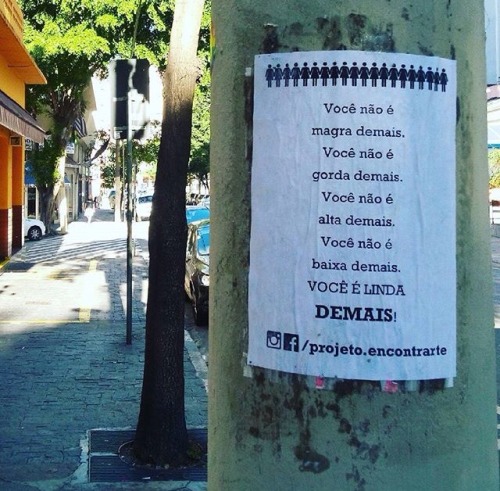 Você não é
magra demais.
Você não é
gorda demais.
Você não é
alta demais.
Você não é
baixa demais.
VOCÊ É LINDA
DEMAIS!
/projeto.encontrarte